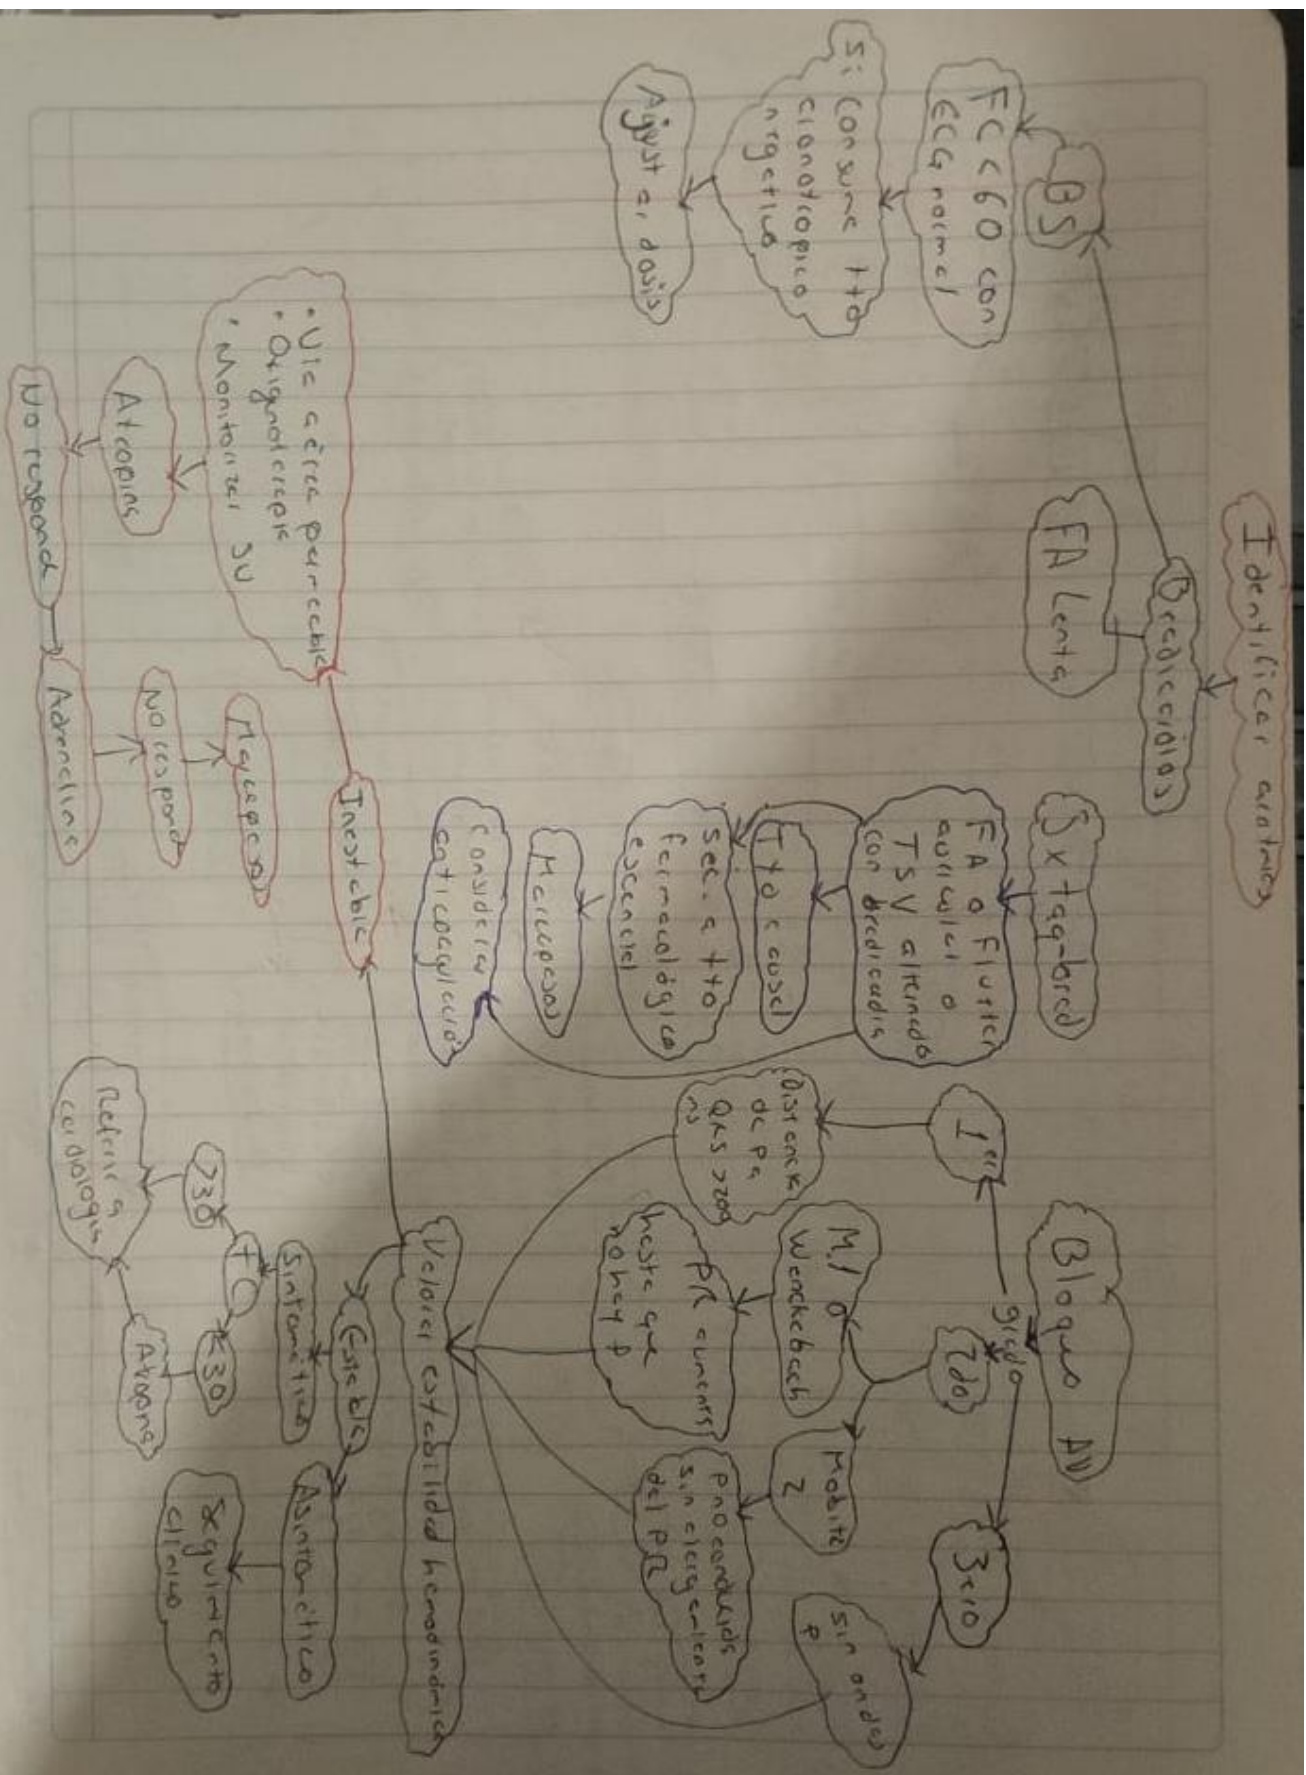 Identificar arritmias
Bradicardias
BS
FC < 60 con
ECG normal
Si consume tto
cronotropico
negativo
Ajustar dosis
FA Lenta
Sx taq-brad
FA o Flutter
auricular o
TSV alternado
con bradicardia
Tto causal
Sec. a tto
farmacológico
escencial
Marcapasos
Considerar
anticoagulación
Bloqueo AV
grado
1er
Distancia
de p a
QRS >200
ms
2do
M.1 o
Wenckebach
PR aumenta
hasta que
no hay P
Mobitz
2
P no conducida
sin alargamiento
del PR
3ero
sin ondas
P
Valorar estabilidad hemodinámica
Inestable
• Vía aérea permeable
• Oxignoterapia
• Monitorizar SV
Atropina
No responde
Adrenalina
No respond
Marcapasos
Estable
Sintomático
FC
>30
<30
Atropina
Referir a
cardiología
Asintomático
Seguimiento
clínico